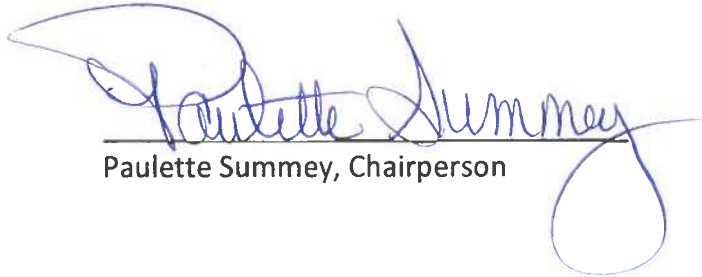 Paulette Summey
Paulette Summey, Chairperson